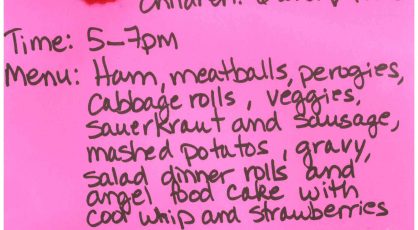 Children:
Time: 5-7pm
Menu: Ham, meatballs, perogies,
cabbage rolls, veggies,
sauerkraut and sausage,
mashed potatos, gravy,
salad dinner rolls and
angel food cake with
cool whip and strawberries